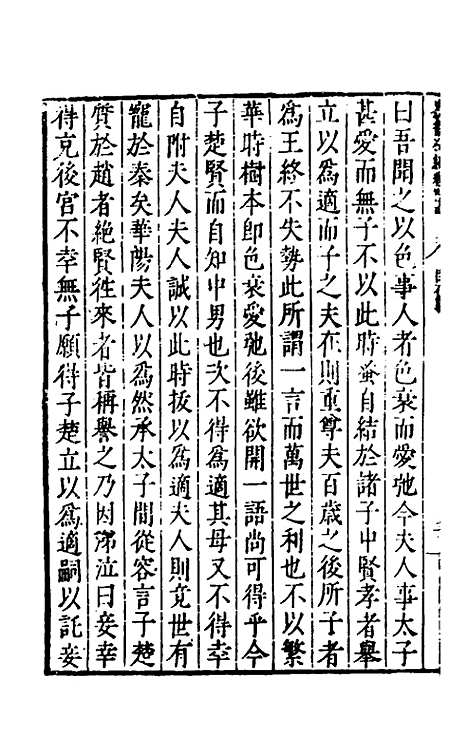 曰吾聞之以色事人者色衰而愛弛今夫人事太子
甚愛而無子不以此時蚤自結於諸子中賢孝者舉
立以爲適而子之夫在則重尊夫百歳之後所子者
爲王終不失勢此所謂一言而萬世之利也不以繁
華時樹本即色衰愛弛後雖欲開一語尚可得乎今
子楚賢而自知中男也次不得爲適其母又不得幸
自附夫人夫人誠以此時拔以爲適夫人則竟世有
寵於秦矣華陽夫人以爲然承太子間從容言子楚
質於趙者絶賢徃來者皆稱譽之乃因涕泣曰妾幸
得充後宮不幸無子願得子楚立以爲適嗣以託妾